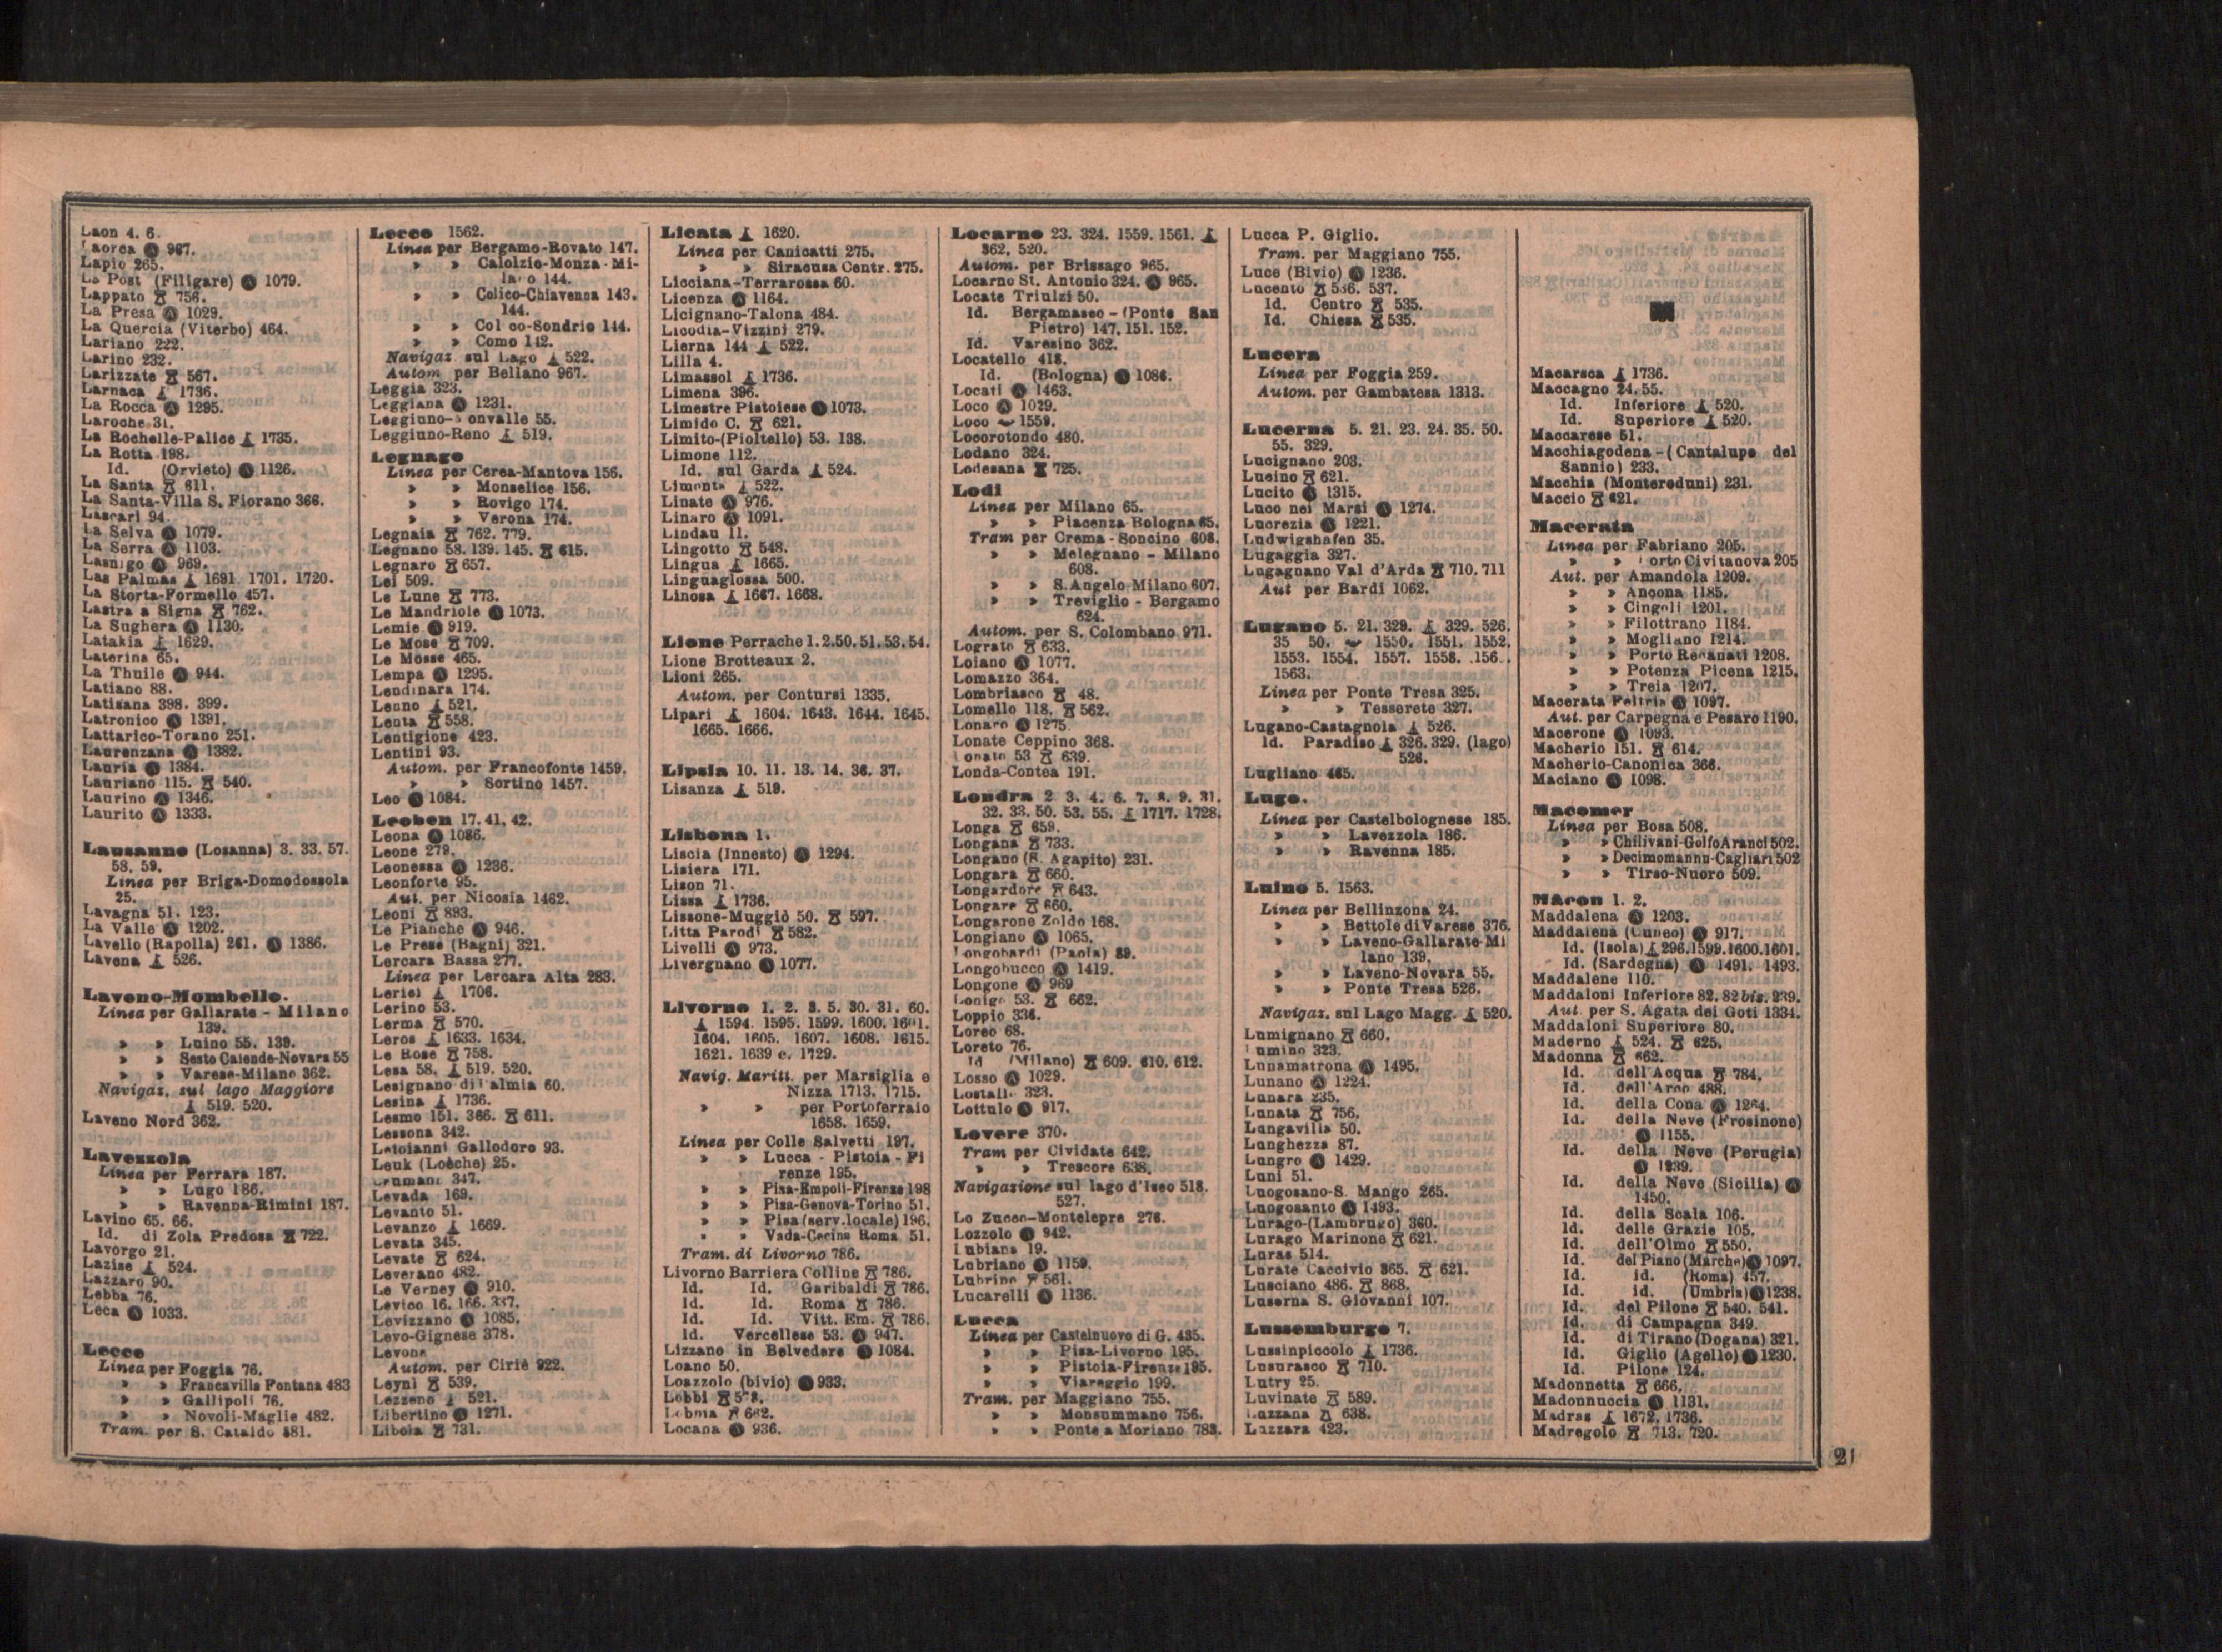 Laon 4. 6.
Laorca Ⓐ 967.
Lapio 265.
La Post (Filigare) Ⓐ 1079.
Lappato 756.
La Presa Ⓐ 1029.
La Quercia (Viterbo) 464.
Lariano 222.
Larino 232.
Larizzate 567.
Larnaca 1736.
La Rocca Ⓐ 1295.
Laroche 31.
La Rochelle-Palice 1735.
La Rotta 198.
Id. (Orvieto) Ⓐ 1126.
La Santa 611.
La Santa-Villa S. Fiorano 366.
Lascari 94.
La Selva Ⓐ 1079.
La Serra Ⓐ 1103.
Lasnigo Ⓐ 969.
Las Palmas 1691. 1701. 1720.
La Storta-Formello 457.
Lastra a Signa 762.
La Sughera Ⓐ 1130.
Latakia 1629.
Laterina 65.
La Thuile Ⓐ 944.
Latiano 88.
Latisana 398. 399.
Latronico Ⓐ 1391.
Lattarico-Torano 251.
Laurenzana Ⓐ 1382.
Lauria Ⓐ 1384.
Lauriano 115. 540.
Laurino Ⓐ 1346.
Laurito Ⓐ 1333.
Lausanne (Losanna) 3. 33. 57.
58. 59.
Linea per Briga-Domodossola
25.
Lavagna 51. 123.
La Valle Ⓐ 1202.
Lavello (Rapolla) 261. Ⓐ 1386.
Lavena 526.
Laveno-Mombello.
Linea per Gallarate - Milano
139.
» » Luino 55. 139.
» » Sesto Calende-Novara 55
» » Varese-Milano 362.
Navigaz. sul lago Maggiore
519. 520.
Laveno Nord 362.
Lavezzola
Linea per Ferrara 187.
» » Lugo 186.
» » Ravenna-Rimini 187.
Lavino 65. 66.
Id. di Zola Predosa 722.
Lavorgo 21.
Lazise 524.
Lazzaro 90.
Lebba 76.
Leca Ⓐ 1033.
Lecce
Linea per Foggia 76.
» » Francavilla Fontana 483
» » Gallipoli 76.
» » Novoli-Maglie 482.
Tram. per S. Cataldo 881.
Lecco 1562.
Linea per Bergamo-Rovato 147.
» » Calolzio-Monza-Mi-
lano 144.
» » Colico-Chiavenna 143.
144.
» » Colico-Sondrio 144.
» » Como 142.
Navigaz sul Lago 522.
Autom per Bellano 967.
Leggia 323.
Leggiana Ⓐ 1231.
Leggiuno-Monvalle 55.
Leggiuno-Reno 519.
Legnago
Linea per Cerea-Mantova 156.
» » Monselice 156.
» » Rovigo 174.
» » Verona 174.
Legnaia 762. 779.
Legnano 58. 139. 145. 615.
Legnaro 657.
Lei 509.
Le Lune 773.
Le Mandriole Ⓐ 1073.
Lemie Ⓐ 919.
Le Mose 709.
Le Mosse 465.
Lempa Ⓐ 1295.
Lendinara 174.
Lenno 521.
Lenta 558.
Lentigione 423.
Lentini 93.
Autom. per Francofonte 1459.
» » Sortino 1457.
Leo Ⓐ 1084.
Leoben 17. 41. 42.
Leona Ⓐ 1086.
Leone 279.
Leonessa Ⓐ 1236.
Leonforte 95.
Aut. per Nicosia 1462.
Leoni 893.
Le Pianche Ⓐ 946.
Le Prese (Bagni) 321.
Lercara Bassa 277.
Linea per Lercara Alta 283.
Lerici 1706.
Lerino 53.
Lerma 570.
Leros 1633. 1634.
Le Rose 758.
Lesa 58. 519. 520.
Lesignano di Palmia 60.
Lesina 1736.
Lesmo 151. 366. 611.
Lessona 342.
Letoianni Gallodoro 93.
Leuk (Loèche) 25.
Leumann 347.
Levada 169.
Levanto 51.
Levanzo 1669.
Levata 345.
Levate 624.
Leverano 482.
Le Verney Ⓐ 910.
Levico 16. 166. 337.
Levizzano Ⓐ 1085.
Levo-Gignese 378.
Levone
Autom. per Ciriè 922.
Leynì 539.
Lezzeno 521.
Libertino Ⓐ 1271.
Libola 731.
Licata 1620.
Linea per Canicatti 275.
» » Siracusa Centr. 275.
Licciana-Terrarossa 60.
Licenza Ⓐ 1164.
Licignano-Talona 484.
Licodia-Vizzini 279.
Lierna 144 522.
Lilla 4.
Limassol 1736.
Limena 396.
Limestre Pistoiese Ⓐ 1073.
Limido C. 621.
Limito-(Pioltello) 53. 138.
Limone 112.
Id. sul Garda 524.
Limonta 522.
Linate Ⓐ 976.
Linaro Ⓐ 1091.
Lindau 11.
Lingotto 548.
Lingua 1665.
Linguaglossa 500.
Linosa 1667. 1668.
Lione Perrache 1. 2. 50. 51. 53. 54.
Lione Brotteaux 2.
Lioni 265.
Autom. per Contursi 1335.
Lipari 1604. 1643. 1644. 1645.
1665. 1666.
Lipsia 10. 11. 13. 14. 36. 37.
Lisanza 519.
Lisbona 1.
Liscia (Innesto) Ⓐ 1294.
Lisiera 171.
Lison 71.
Lissa 1736.
Lissone-Muggiò 50. 597.
Litta Parodi 582.
Livelli Ⓐ 973.
Livergnano Ⓐ 1077.
Livorno 1. 2. 3. 5. 30. 31. 60.
1594. 1595. 1599. 1600. 1601.
1604. 1605. 1607. 1608. 1615.
1621. 1639 e. 1729.
Navig. Maritt. per Marsiglia e
Nizza 1713. 1715.
» » per Portoferraio
1658. 1659.
Linea per Colle Salvetti 197.
» » Lucca - Pistoia - Fi
renze 195.
» » Pisa-Empoli-Firenze 198
» » Pisa-Genova-Torino 51.
» » Pisa (serv. locale) 196.
» » Vada-Cecina Roma 51.
Tram. di Livorno 786.
Livorno Barriera Colline 786.
Id. Id. Garibaldi 786.
Id. Id. Roma 786.
Id. Id. Vitt. Em. 786.
Id. Vercellese 53. Ⓐ 947.
Lizzano in Belvedere Ⓐ 1084.
Loano 50.
Loazzolo (bivio) Ⓐ 933.
Lobbi 578.
Lobnia 682.
Locana Ⓐ 936.
Locarno 23. 324. 1559. 1561.
362. 520.
Autom. per Brissago 965.
Locarno St. Antonio 324. Ⓐ 965.
Locate Triulzi 50.
Id. Bergamasco - (Ponte San
Pietro) 147. 151. 152.
Id. Varesino 362.
Locatello 418.
Id. (Bologna) Ⓐ 1086.
Locati Ⓐ 1463.
Loco Ⓐ 1029.
Loco 1559.
Locorotondo 480.
Lodano 324.
Lodesana 725.
Lodi
Linea per Milano 65.
» » Piacenza-Bologna 65.
Tram per Crema-Soncino 608.
» » Melegnano - Milano
608.
» » S. Angelo Milano 607.
» » Treviglio - Bergamo
624.
Autom. per S. Colombano 971.
Lograto 633.
Loiano Ⓐ 1077.
Lomazzo 364.
Lombriasco 48.
Lomello 118. 562.
Lonaro Ⓐ 1275
Lonate Ceppino 368.
Lonato 53 639.
Londa-Contea 191.
Londra 2 3. 4. 6. 7. 8. 9. 31.
32. 33. 50. 53. 55. 1717. 1728.
Longa 659.
Longana 733.
Longano (S. Agapito) 231.
Longara 660.
Longardore 643.
Longare 660.
Longarone Zoldo 168.
Longiano Ⓐ 1065.
Longobardi (Paola) 89.
Longobucco Ⓐ 1419.
Longone Ⓐ 969
Lonigo 53. 662.
Loppio 336.
Loreo 68.
Loreto 76.
Id (Milano) 609. 610. 612.
Losso Ⓐ 1029.
Lostallo 323.
Lottulo Ⓐ 917.
Lovere 370.
Tram per Cividate 642.
» » Trescore 638.
Navigazione sul lago d'Iseo 518.
527.
Lo Zucco-Montelepre 276.
Lozzolo Ⓐ 942.
Lubiana 19.
Lubriano Ⓐ 1159.
Lubrino 561.
Lucarelli Ⓐ 1136.
Lucca
Linea per Castelnuovo di G. 435.
» » Pisa-Livorno 195.
» » Pistoia-Firenze 195.
» » Viareggio 199.
Tram. per Maggiano 755.
» » Monsummano 756.
» » Ponte a Moriano 783.
Lucca P. Giglio.
Tram. per Maggiano 755.
Luce (Bivio) Ⓐ 1236.
Lucento 536. 537.
Id. Centro 535.
Id. Chiesa 535.
Lucera
Linea per Foggia 259.
Autom. per Gambatesa 1313.
Lucerna 5. 21. 23. 24. 35. 50.
55. 329.
Lucignano 203.
Lucino 621.
Lucito Ⓐ 1315.
Luco nei Marsi Ⓐ 1274.
Lucrezia Ⓐ 1221.
Ludwigshafen 35.
Lugaggia 327.
Lugagnano Val d'Arda 710. 711
Aut per Bardi 1062.
Lugano 5. 21. 329. 329. 526.
35 50. 1550. 1551. 1552.
1553. 1554. 1557. 1558.
1563.
Linea per Ponte Tresa 325.
» » Tesserete 327.
Lugano-Castagnola 526.
Id. Paradiso 326. 329. (lago)
526.
Lugliano 465.
Lugo.
Linea per Castelbolognese 185.
» » Lavezzola 186.
» » Ravenna 185.
Luino 5. 1563.
Linea per Bellinzona 24.
» » Bettole di Varese 376.
» » Laveno-Gallarate-Mi
lano 139.
» » Laveno-Novara 55.
» » Ponte Tresa 526.
Navigaz. sul Lago Magg. 520.
Lumignano 660.
Lumino 323.
Lunamatrona Ⓐ 1495.
Lunano Ⓐ 1224.
Lunara 235.
Lunata 756.
Lungavilla 50.
Lunghezza 87.
Lungro Ⓐ 1429.
Luni 51.
Luogosano-S. Mango 265.
Luogosanto Ⓐ 1493.
Lurago-(Lambrugo) 360.
Lurago Marinone 621.
Luras 514.
Lurate Caccivio 365. 621.
Lusciano 486. 868.
Luserna S. Giovanni 107.
Lussemburgo 7.
Lussinpiccolo 1736.
Lusurasco 710.
Lutry 25.
Luvinate 589.
Luzzana 638.
Luzzara 423.
M
Macarsca 1736.
Maccagno 24. 55.
Id. Inferiore 520.
Id. Superiore 520.
Maccarese 51.
Macchiagodena - (Cantalupo del
Sannio) 233.
Macchia (Montereduni) 231.
Maccio 621.
Macerata
Linea per Fabriano 205.
» » Porto Civitanova 205
Aut. per Amandola 1209.
» » Ancona 1185.
» » Cingoli 1201.
» » Filottrano 1184.
» » Mogliano 1214.
» » Porto Recanati 1208.
» » Potenza Picena 1215.
» » Treia 1207.
Macerata Feltria Ⓐ 1097.
Aut. per Carpegna e Pesaro 1190.
Macerone Ⓐ 1093.
Macherio 151. 614.
Macherio-Canonica 366.
Maciano Ⓐ 1098.
Macomer
Linea per Bosa 508.
» » Chilivani-Golfo Aranci 502.
» » Decimomannu-Cagliari 502
» » Tirso-Nuoro 509.
Mâcon 1. 2.
Maddalena Ⓐ 1203.
Maddalena (Cuneo) Ⓐ 917.
Id. (Isola) 296. 1599. 1600. 1601.
Id. (Sardegna) Ⓐ 1491. 1493.
Maddalene 110.
Maddaloni Inferiore 82. 82 bis. 239.
Aut per S. Agata dei Goti 1334.
Maddaloni Superiore 80.
Maderno 524. 625.
Madonna 662.
Id. dell'Acqua 784.
Id. dell'Arco 488.
Id. della Cona Ⓐ 1264.
Id. della Neve (Frosinone)
Ⓐ 1155.
Id. della Neve (Perugia)
Ⓐ 1239.
Id. della Neve (Sicilia) Ⓐ
1450.
Id. della Scala 106.
Id. delle Grazie 105.
Id. dell'Olmo 550.
Id. del Piano (Marche) Ⓐ 1097.
Id. id. (Roma) 457.
Id. id. (Umbria) Ⓐ 1238.
Id. del Pilone 540. 541.
Id. di Campagna 349.
Id. di Tirano (Dogana) 321.
Id. Giglio (Agello) Ⓐ 1230.
Id. Pilone 124.
Madonnetta 666.
Madonnuccia Ⓐ 1131.
Madras 1672. 1736.
Madregolo 713. 720.
21